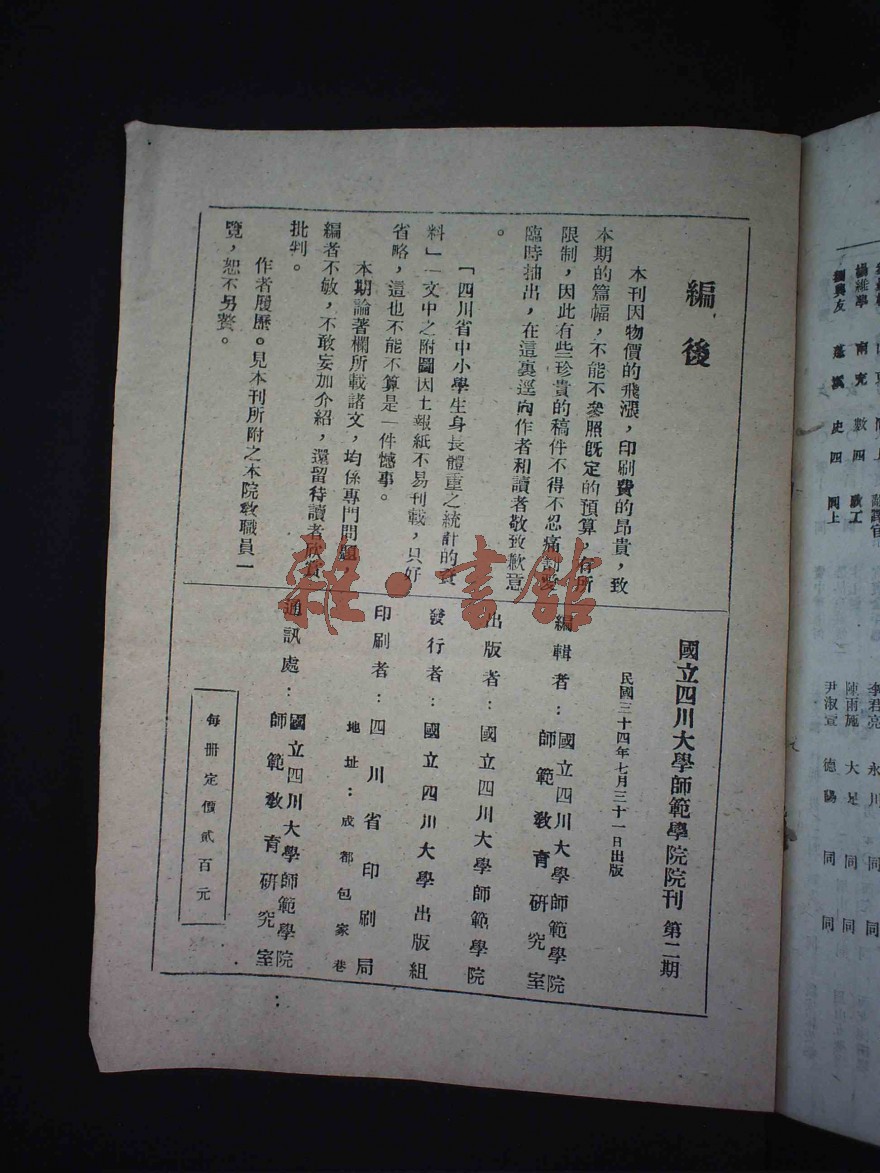 編後
本刊因物價的飛漲，印刷費的昂貴，致
本期的篇幅，不能不參照既定的預算，有所
限制，因此有些珍貴的稿件不得不忍痛割愛
臨時抽出，在這裏逕向作者和讀者敬致歉意
。
「四川省中小學生身長體重之統計的資
料」一文中之附圖因土報紙不易刊載，只好
省略，這也不能不算是一件憾事。
本期論著欄所載諸文，均係專門問題
編者不敏，不敢妄加介紹，還留待讀者欣賞
批判。
作者履歷。見本刊所附之本院敎職員一
覽，恕不另贅。
國立四川大學師範學院院刊 第二期
民國三十四年七月三十一日出版
編輯者：國立四川大學師範學院
師範敎育研究室
出版者：國立四川大學師範學院
發行者：國立四川大學出版組
印刷者：四川省印刷局
地址：成都包家巷
通訊處：國立四川大學師範學院
師範敎育研究室
每冊定價貳百元
雜·書館
劉興友 蓬溪 史四 同上
南充 數四
李君亮 永川 同 同
陳雨施 大足 同 同
尹淑宣 德陽 同 同